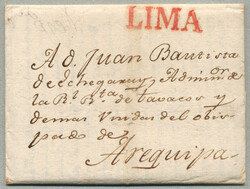 LIMA
A d. Juan Bautista
de Echegaray, Admin.or
la R.l R.ta de Tavacos y
demas Unidas del obis-
pado de
Arequipa.